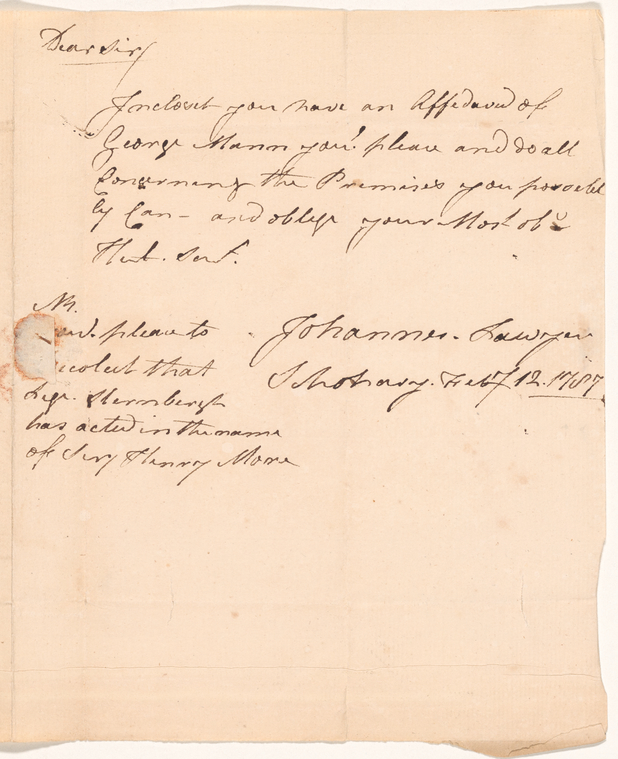 Dear Sir
Incloset you have an Affedaved of
George Mann you'l please and do all
Concerning the Premises you possebl
ly Can - and oblige your Most obt
Hub. Servt.
NB.
and. please to
recolect that
Sternbergh
has acted in the name
of Sir Henry More
Johannes. Lawyer
Schohary. Feby 12. 1787